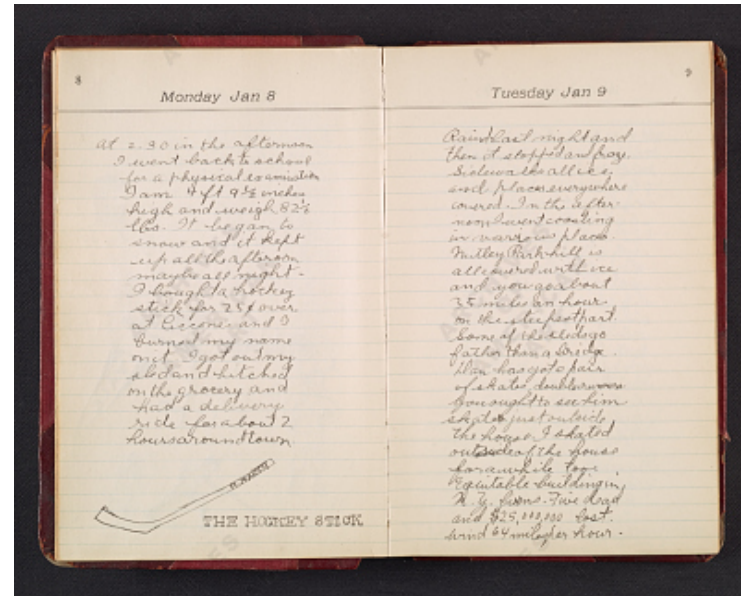 8
Monday Jan 8
At 2.30 in the afternoon
I went back to school
for a physical examination
I am 4 ft 9½ inches
high and weigh 82½
lbs. It began to
snow and it kept
up all the afternoon
maybe all night.
I bought a hockey
stick for 25¢ over
at Ciccone and I
burned my name
on it. I got out my
sled and hitched
on the grocery and
had a delivery
ride for about 2
hours around town.
THE HOCKEY STICK
9
Tuesday Jan 9
Rained last night and
then it stopped and froze.
Sidewalks all ice
and places everywhere
covered. In the after-
noon I went coasting
in various places.
Nutley Park hill is
all covered with ice
and you go about
35 miles an hour
on the steepest part.
Some of the sleds go
father than a bridge.
has got a pair
of skates, double
You ought to see him
skate just outside
the house. I skated
outside of the house
for awhile too.
Equitable building in
N. Y. burns. Five dead
and $25,000,000 lost.
wind 64 miles per hour.